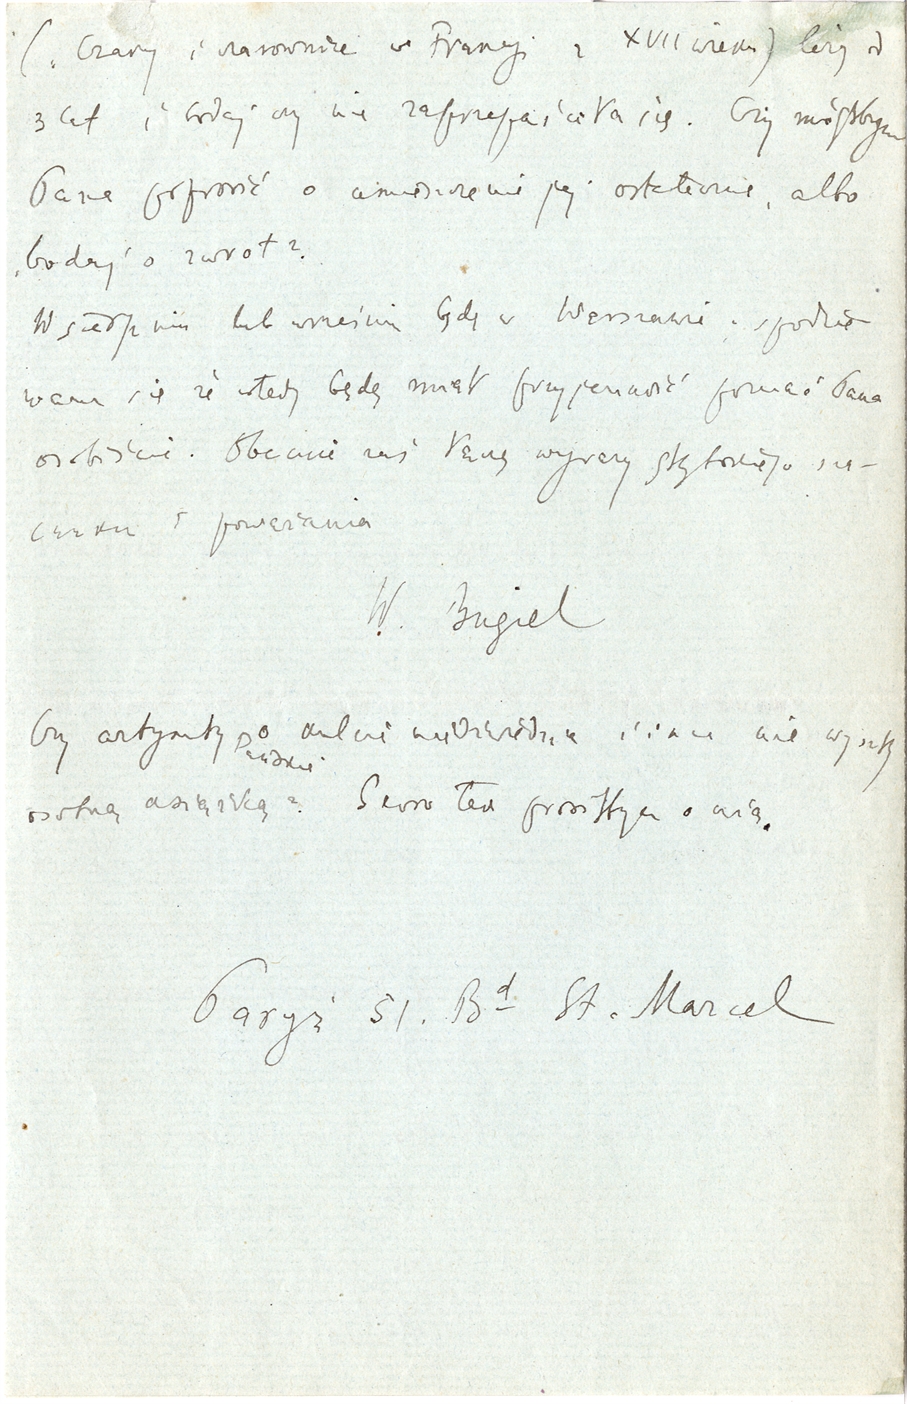 („Czary i czarownice w Francji z XVII wieku) leży od
3 lat i bodaj czy nie zaprzepaściła się. Czy mógłbym
Pana poprosić o umieszczenie jej ostatecznie, albo
bodaj o zwrot?
W sierpniu lub wrześniu będę w Warszawie i spodzie-
wam się że wtedy będę miał przyjemność poznać Pana
osobiście. Obecnie zaś łączę wyrazy głębokiego sza-
cunku i poważania
W. Bugiel
Czy artykuły Pańskie o kulcie niedźwiedzia i inne nie wyszły
osobną książką? Serio prosiłbym o nią.
Paryż 51. Bd St. Marcel